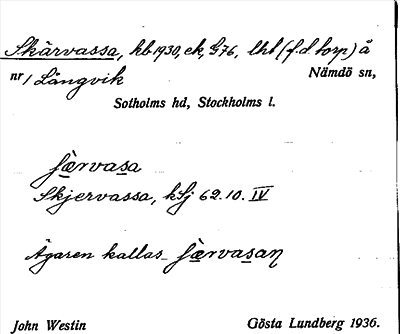 Skärvassa, hb 1930, ek, G76, lht (f.d. torp) å
nr 1 Långvik Nämdö sn,
Sotholms hd, Stockholms l.
ʃærvasa
Skjervassa, kSj 62.10. IV
Ägaren kallas ʃærvasaɳ
John Westin Gösta Lundberg 1936.